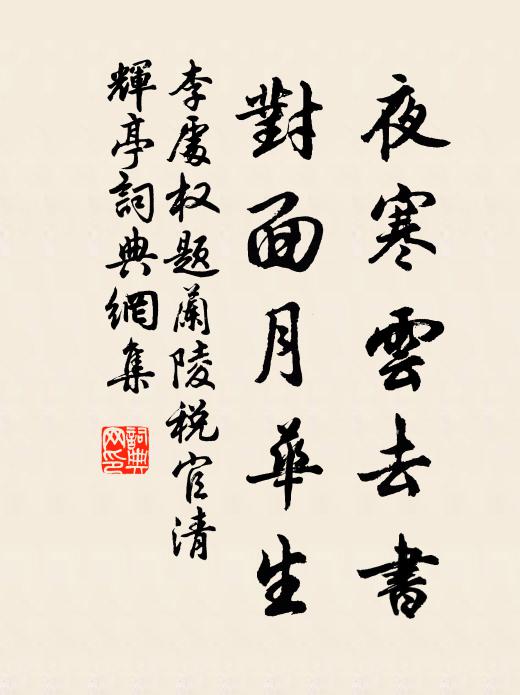 夜寒雲去書
對面月華生
李處权题蘭陵税官清
輝亭詞典網集
詞典网印